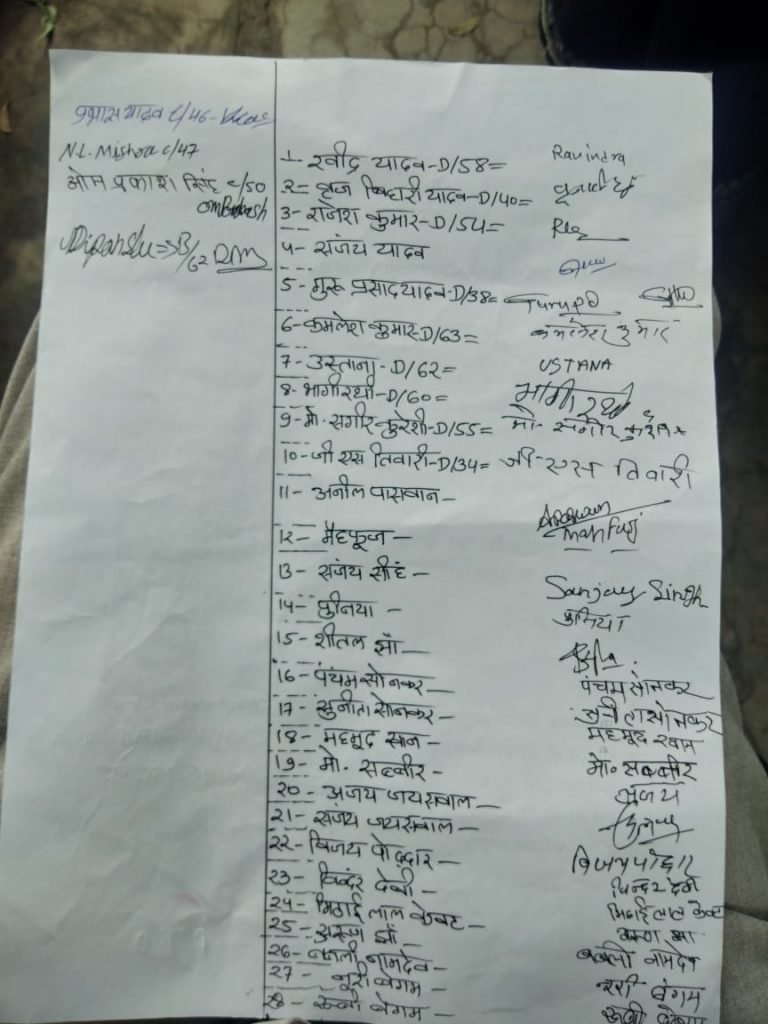 यादव C/46-
N.L. Mishra C/47
ओम प्रकाश सिंह C/50
ombrakash
Dipanshu => B/62
1- रवींद्र यादव-D/58= Ravindra
2= बृज बिहारी यादव-D/40=
3- राजेश कुमार-D/54=
4- संजय यादव
5- गुरु प्रसाद यादव-D/38= Gurupd
6- कमलेश कुमार-D/63= कमलेश कुमार
7- उस्ताना-D/62= USTANA
8- भागीरथी-D/60= भागीरथी
9- मो. सगीर कुरेशी-D/55= मो. सगीर
10- जी एस तिवारी-D/34= जी एस तिवारी
11- अनील पासवान-
12- मैहफूज- mahfuj
13- संजय सींहं- Sanjay Singh
14- मुनिया-
15- शीतल झाँ-
16- पंचम सोनकर- पंचम सोनकर
17- सुनीता सोनकर- सोनकर
18- महमुद खान- महमुद खान
19- मो. सब्बीर- मो. सब्बीर
20- अजय जयसवाल- अजय
21- संजय जयसवाल-
22- विजय पोद्दार- विजय पोद्दार
23- देवी- देवी
24- मिठाई लाल केवट- मिठाई लाल केवट
25- अरुण झाँ- अरुण झा
26- नामदेव- बबली नामदेव
27- नूरी बेगम- नूरी बेगम
28- रूबी बेगम- रूबी बेगम